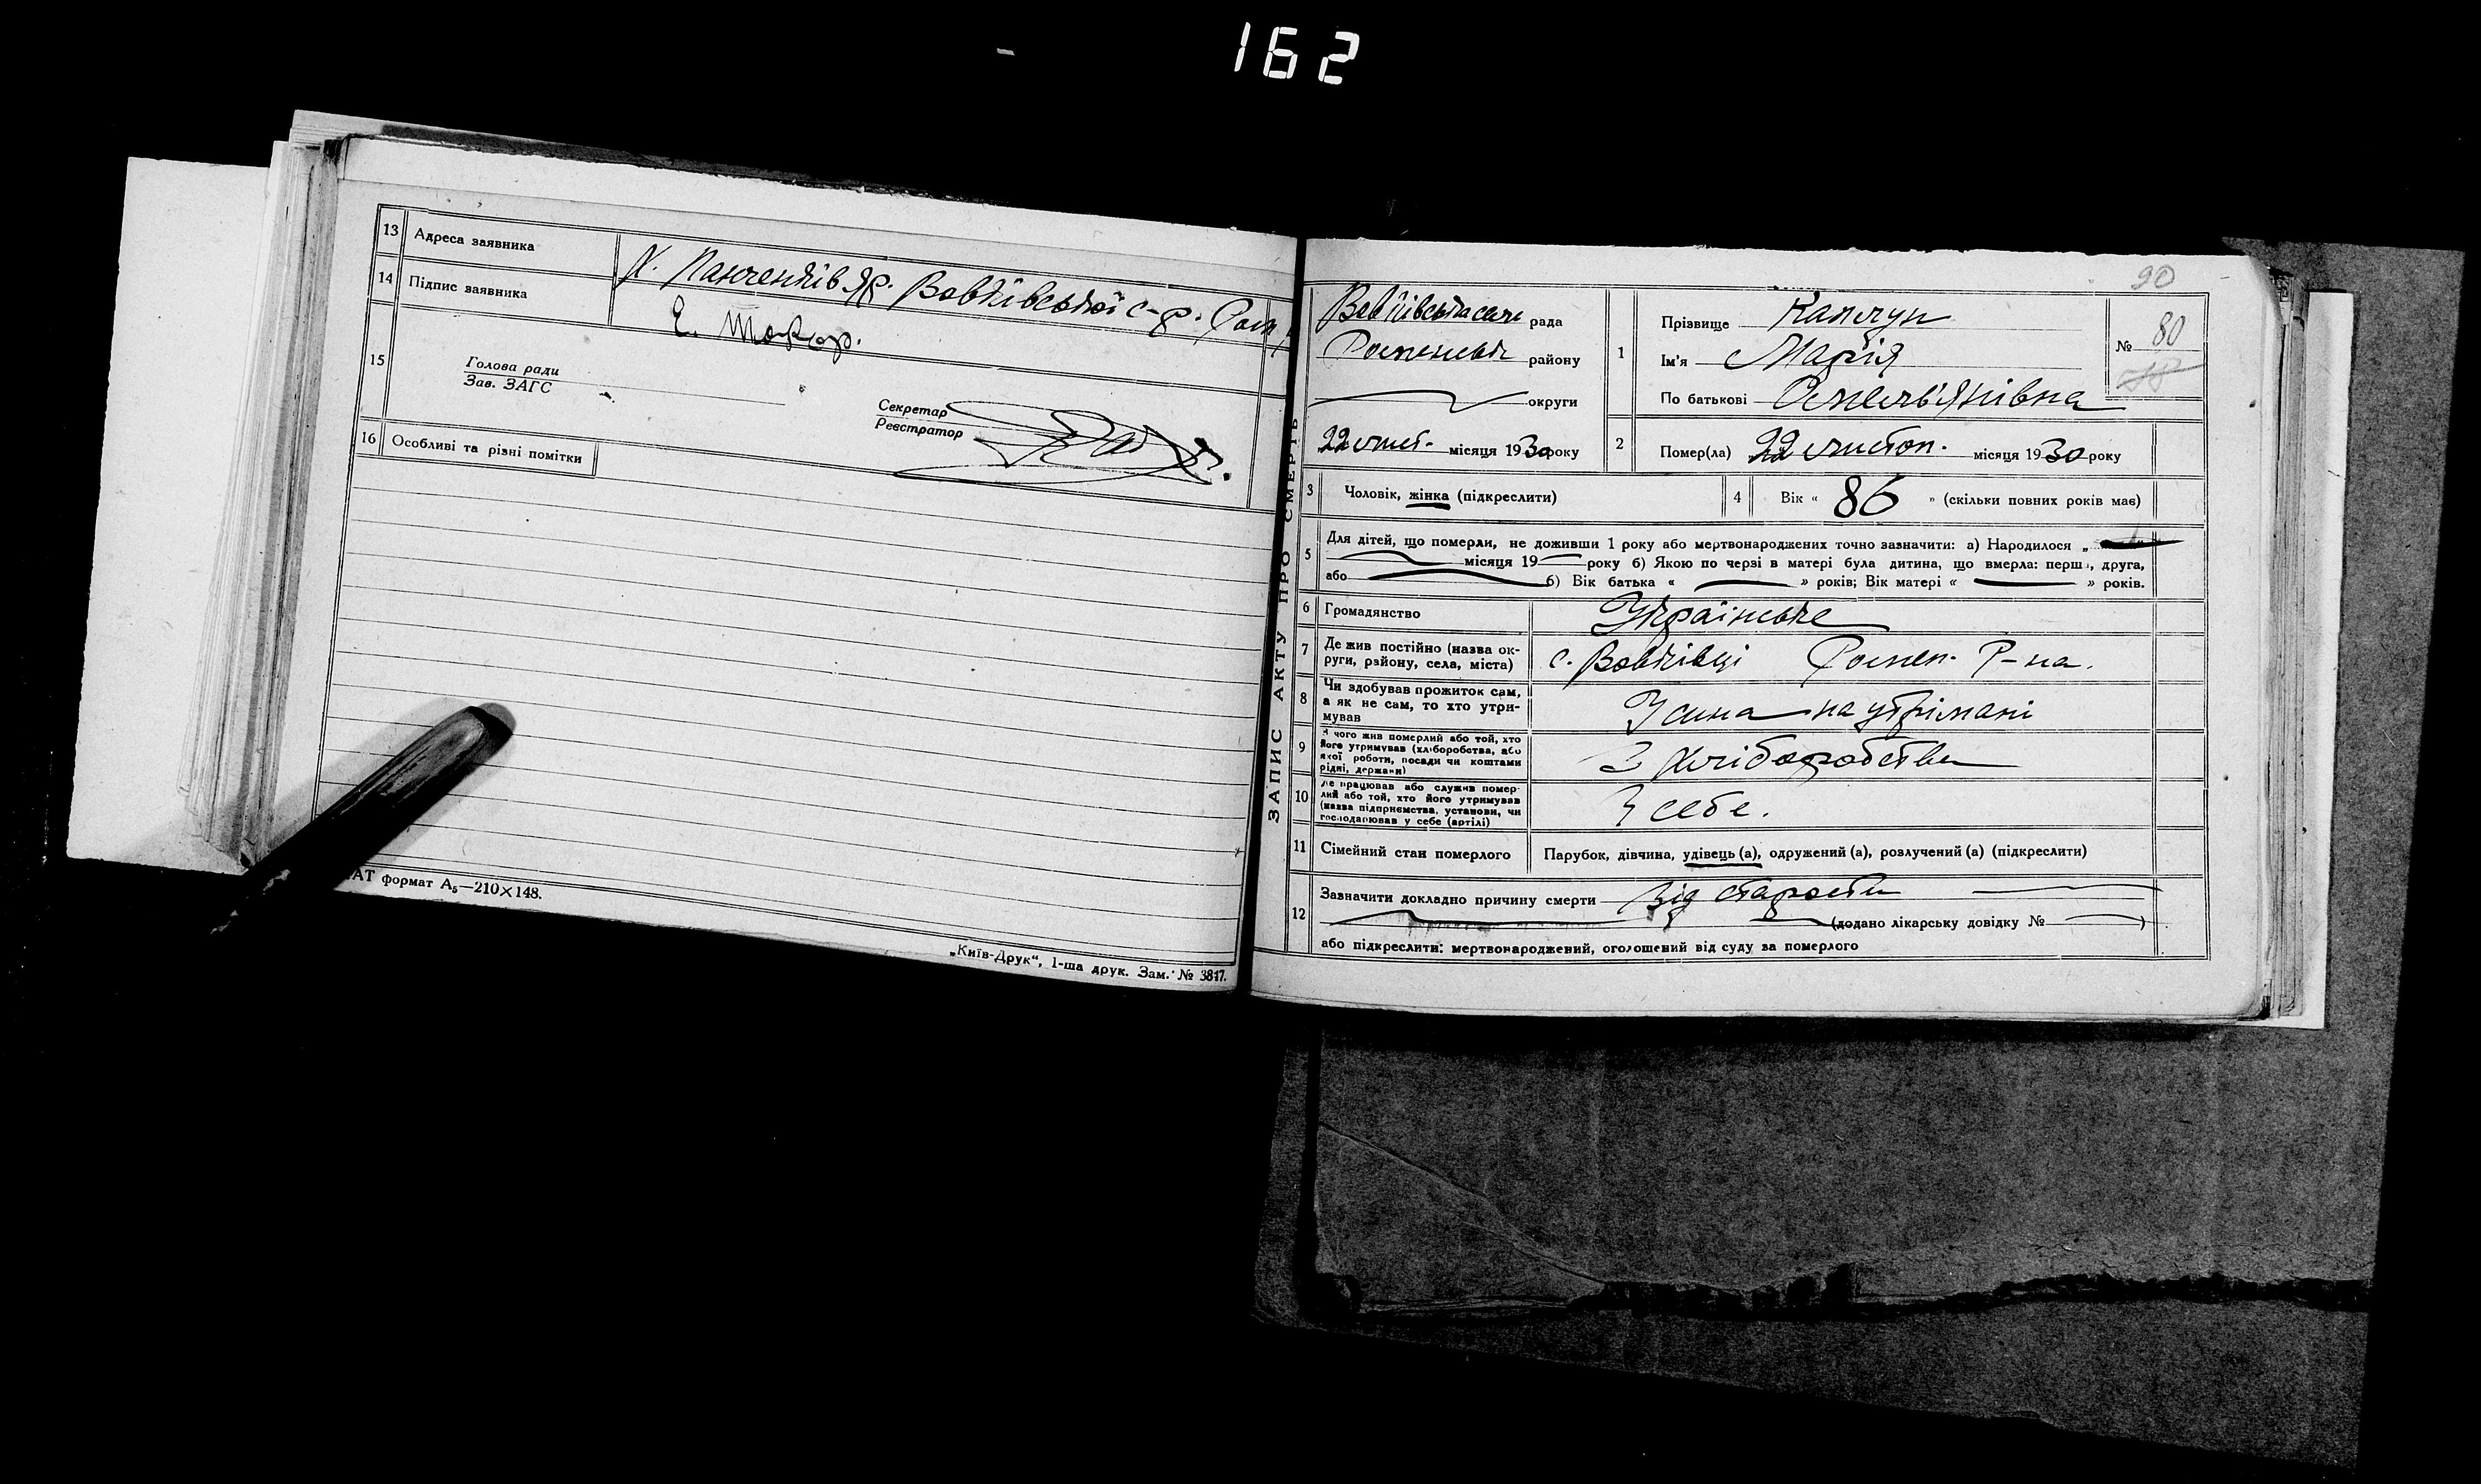 162
13 Адреса заявника
Х. Панченків Яр. Вовківської с-р. Ромн
14 Підпис заявника
Є. Токар.
15
Голова ради
Зав. ЗАГС
Секретар
Реєстратор
16 Особливі та різні помітки
АТ формат А5—210×148.
„Київ-Друк“, 1-ша друк. Зам. № 3817.
ЗАПИС АКТУ ПРО СМЕРТЬ
90
рада
району
округи
22 лист. місяця 1930 року
1
Прізвище Капчун
Ім'я Марія
По батькові Омелв'янівна
№ 80
2 Помер(ла) 22 листоп. місяця 1930 року
3 Чоловік, жінка (підкреслити)
4 Вік « 86 » (скільки повних років має)
5 Для дітей, що померли, не доживши 1 року або мертвонароджених точно зазначити: а) Народилося „
місяця 19 року б) Якою по черзі в матері була дитина, що вмерла: перша, друга,
або б) Вік батька « » років; Вік матері « » років.
6 Громадянство Українське
7 Де жив постійно (назва ок-
руги, району, села, міста) с. Вовківці Ромен. Р-на.
8 Чи здобував прожиток сам,
а як не сам, то хто утри-
мував У сина на утрімані
9 З чого жив померлий або той, хто
його утримував (хліборобства, або
якої роботи, посади чи коштами
рідні, держави) З хліборобства
10 Де працював або служив помер-
лий або той, хто його утримував
(назва підприємства, установи, чи
господарював у себе (артілі) У себе.
11 Сімейний стан померлого Парубок, дівчина, удівець (а), одружений (а), розлучений (а) (підкреслити)
12 Зазначити докладно причину смерти Від старости
(додано лікарську довідку № )
або підкреслити: мертвонароджений, оголошений від суду за померлого